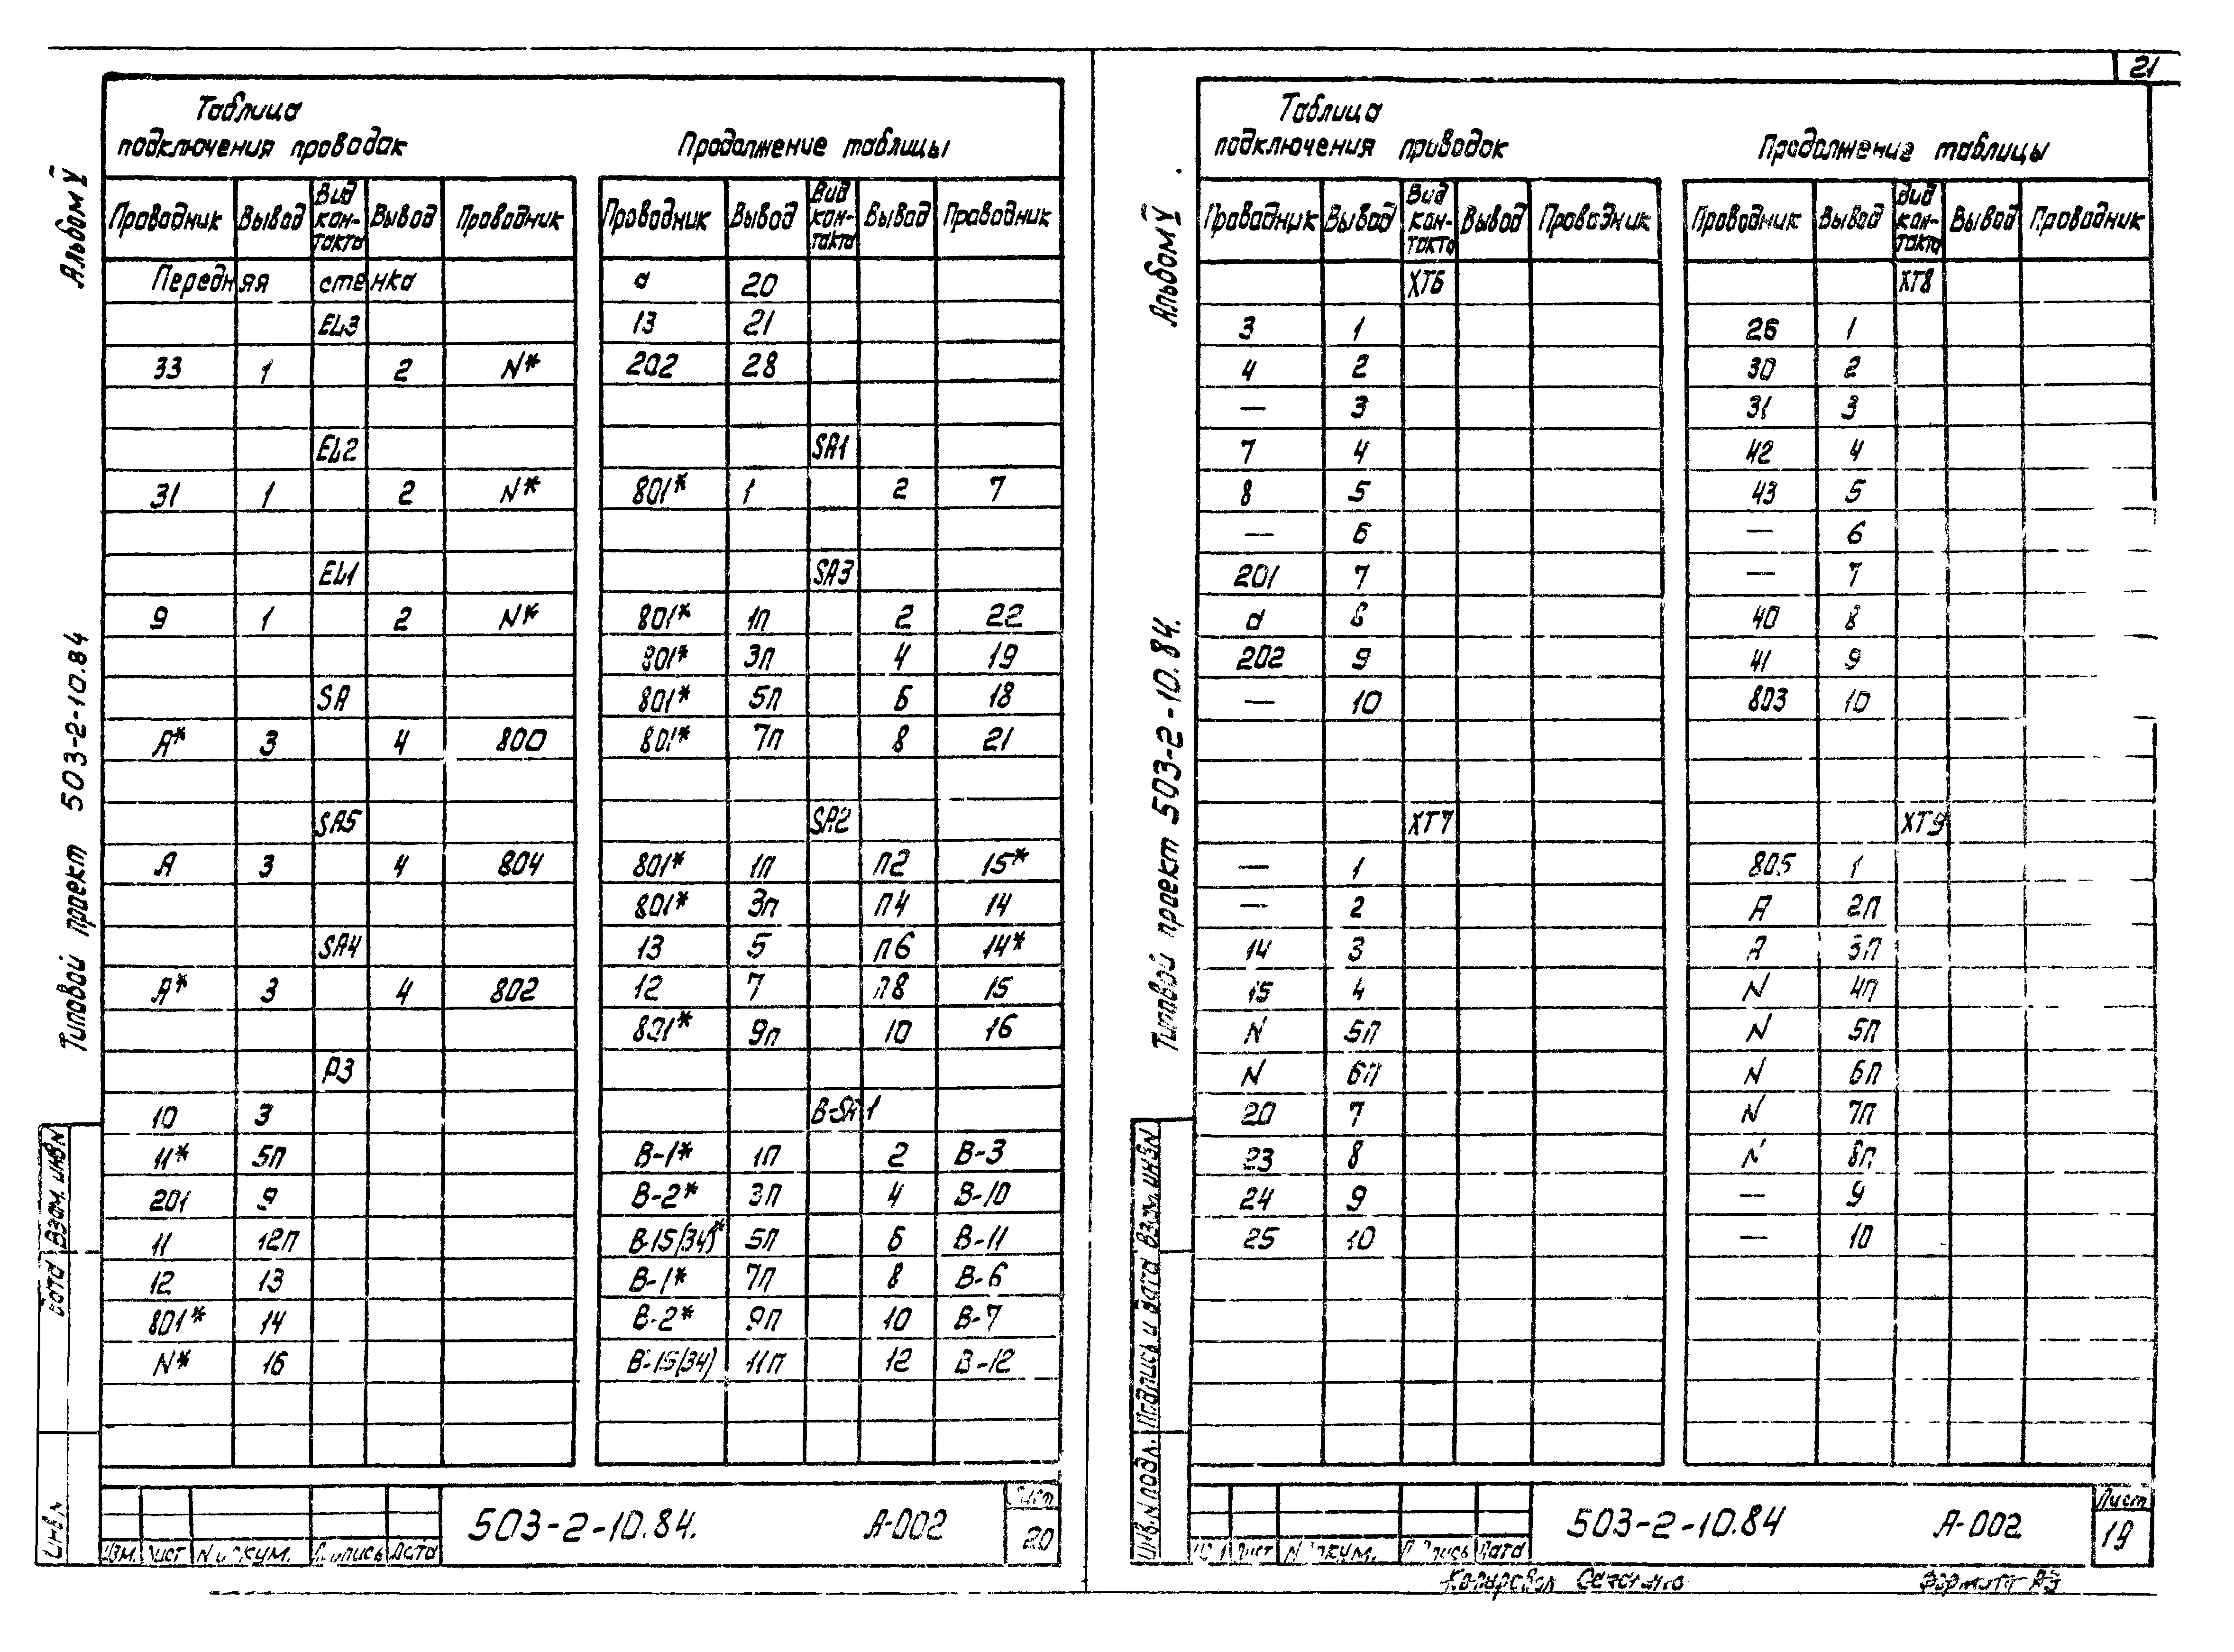 21
Альбом V
Типовой проект 503-2-10.84
Таблица
подключения проводок
Продолжение таблицы
Проводник Вывод Вид кон-такта Вывод Проводник
Передняя стенка
EL3
33 1 2 N*
EL2
31 1 2 N*
EL1
9 1 2 N*
SA
A* 3 4 800
SA5
A 3 4 804
SA4
A* 3 4 802
P3
10 3
11* 5П
201 9
11 12П
12 13
801* 14
N* 16
Проводник Вывод Вид кон-такта Вывод Проводник
d 20
13 21
202 28
SA1
801* 1 2 7
SA3
801* 1П 2 22
801* 3П 4 19
801* 5П 6 18
801* 7П 8 21
SA2
801* 1П П2 15*
801* 3П П4 14
13 5 П6 14*
12 7 П8 15
801* 9П 10 16
B-SA1
B-1* 1П 2 B-3
B-2* 3П 4 B-10
B-15(34)* 5П 6 B-11
B-1* 7П 8 B-6
B-2* 9П 10 B-7
B-15(34) 11П 12 B-12
Взам. инв N
дата
Инв. N
Изм. Лист N докум. Подпись Дата
503-2-10.84. А-002
Лист
20
Альбом V
Типовой проект 503-2-10.84.
Таблица
подключения проводок
Продолжение таблицы
Проводник Вывод Вид кон-такта Вывод Проводник
XT6
3 1
4 2
— 3
7 4
8 5
— 6
201 7
d 8
202 9
— 10
XT7
— 1
— 2
14 3
15 4
N 5П
N 6П
20 7
23 8
24 9
25 10
Проводник Вывод Вид кон-такта Вывод Проводник
XT8
26 1
30 2
31 3
42 4
43 5
— 6
— 7
40 8
41 9
803 10
XT9
805 1
A 2П
A 3П
N 4П
N 5П
N 6П
N 7П
N 8П
— 9
— 10
Инв. N подл. Подпись и дата Взам. инв N
Лист N докум. Подпись Дата
503-2-10.84 А-002
Лист
19
Копировал
Формат А3